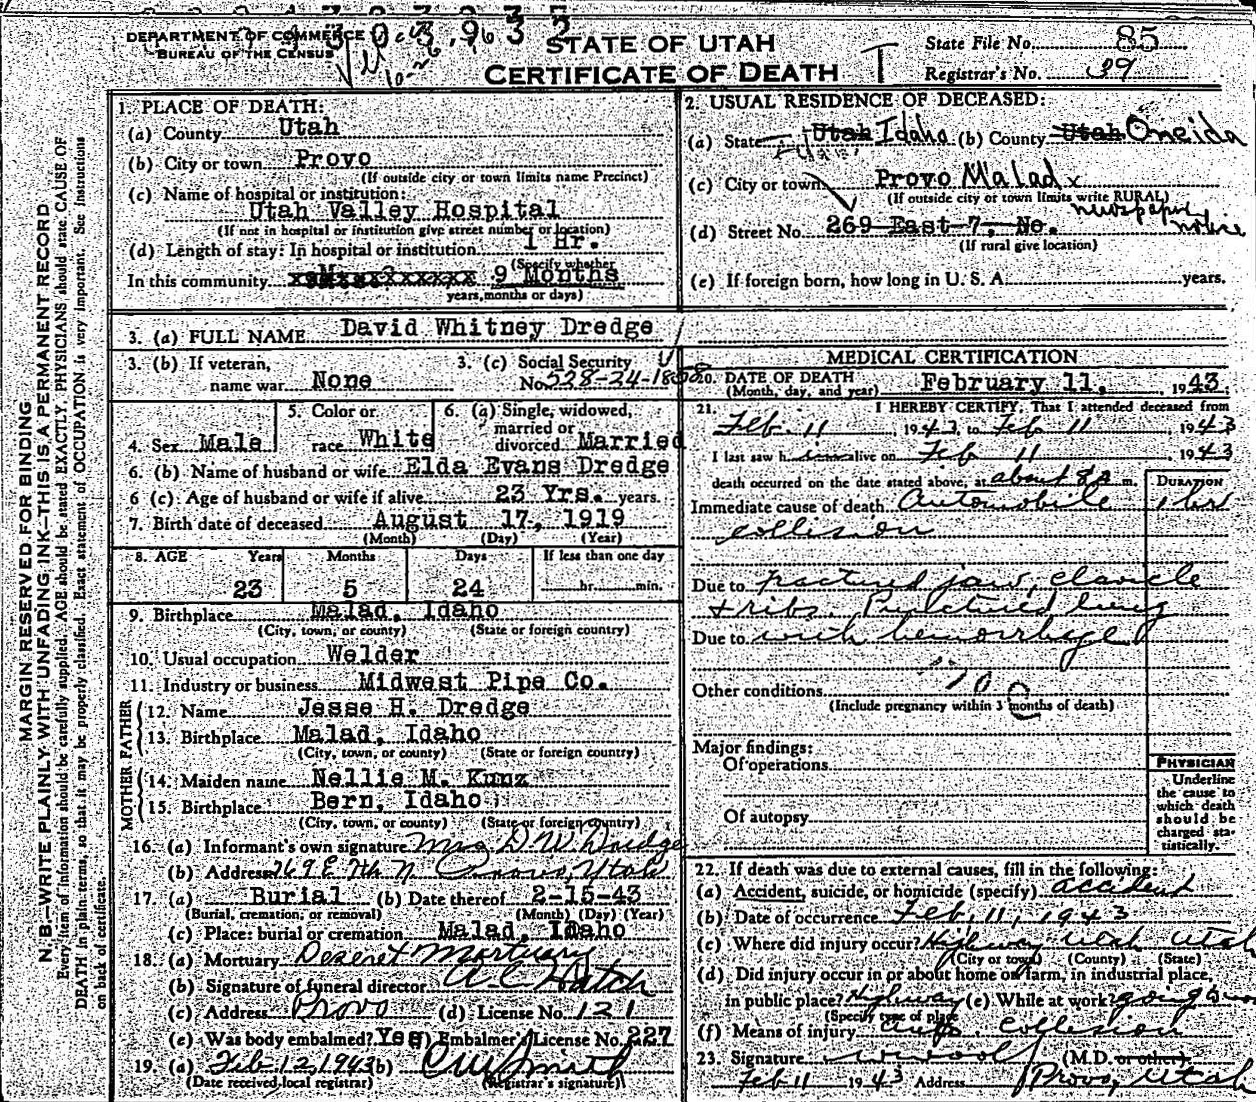 DEPARTMENT OF COMMERCE
BUREAU OF THE CENSUS
STATE OF UTAH
CERTIFICATE OF DEATH
State File No. 85
Registrar's No. 39
MARGIN RESERVED FOR BINDING
N. B.—WRITE PLAINLY WITH UNFADING INK—THIS IS A PERMANENT RECORD
Every item of information should be carefully supplied. AGE should be stated EXACTLY. PHYSICIANS should state CAUSE OF
DEATH in plain terms, so that it may be properly classified. Exact statement of OCCUPATION is very important. See Instructions
on back of certificate.
1. PLACE OF DEATH:
(a) County Utah
(b) City or town Provo
(If outside city or town limits name Precinct)
(c) Name of hospital or institution:
Utah Valley Hospital
(If not in hospital or institution give street number or location)
(d) Length of stay: In hospital or institution 1 Hr.
(Specify whether
In this community 9 Months
years, months or days)
2. USUAL RESIDENCE OF DECEASED:
(a) State Utah Idaho (b) County Utah Oneida
(c) City or town Provo Malad x
(If outside city or town limits write RURAL)
newspaper notice
(d) Street No. 269 East 7, No.
(If rural give location)
(e) If foreign born, how long in U. S. A. years.
3. (a) FULL NAME David Whitney Dredge
3. (b) If veteran,
name war None
3. (c) Social Security
No. 528-24-1858
4. Sex Male
5. Color or
race White
6. (a) Single, widowed,
married or
divorced Married
6. (b) Name of husband or wife Elda Evans Dredge
6 (c) Age of husband or wife if alive 23 Yrs. years.
7. Birth date of deceased August 17, 1919
(Month) (Day) (Year)
8. AGE Years Months Days If less than one day
23 5 24 hr. min.
9. Birthplace Malad, Idaho
(City, town, or county) (State or foreign country)
10. Usual occupation Welder
11. Industry or business Midwest Pipe Co.
FATHER
12. Name Jesse H. Dredge
13. Birthplace Malad, Idaho
(City, town, or county) (State or foreign country)
MOTHER
14. Maiden name Nellie M. Kunz
15. Birthplace Bern, Idaho
(City, town, or county) (State or foreign country)
16. (a) Informant's own signature Mrs D W Dredge
(b) Address 269 E 7th N. Provo, Utah
17. (a) Burial (b) Date thereof 2-15-43
(Burial, cremation, or removal) (Month) (Day) (Year)
(c) Place: burial or cremation Malad, Idaho
18. (a) Mortuary Deseret Mortuary
(b) Signature of funeral director A. C. Hatch
(c) Address Provo (d) License No. 121
(e) Was body embalmed? Yes (f) Embalmer's License No. 227
19. (a) Feb 12, 1943 (b) Smith
(Date received local registrar) (Registrar's signature)
MEDICAL CERTIFICATION
20. DATE OF DEATH February 11, 1943.
(Month, day, and year)
21. I HEREBY CERTIFY, That I attended deceased from
Feb. 11, 1943, to Feb 11, 1943
I last saw h im alive on Feb 11, 1943
death occurred on the date stated above, at about 8 p m.
DURATION
Immediate cause of death Automobile 1 hr
collision
Due to fractured jaw, clavicle
+ ribs. Punctured lung
Due to with hemorrhage
170
Other conditions
(Include pregnancy within 3 months of death)
Major findings:
Of operations
Of autopsy
PHYSICIAN
Underline
the cause to
which death
should be
charged sta-
tistically.
22. If death was due to external causes, fill in the following:
(a) Accident, suicide, or homicide (specify) accident
(b) Date of occurrence Feb, 11, 1943
(c) Where did injury occur? Highway Utah Utah
(City or town) (County) (State)
(d) Did injury occur in or about home on farm, in industrial place,
in public place? Highway (e) While at work? going
(Specify type of place
(f) Means of injury auto. collision
23. Signature (M.D. or other)
Feb 11 1943 Address Provo, Utah